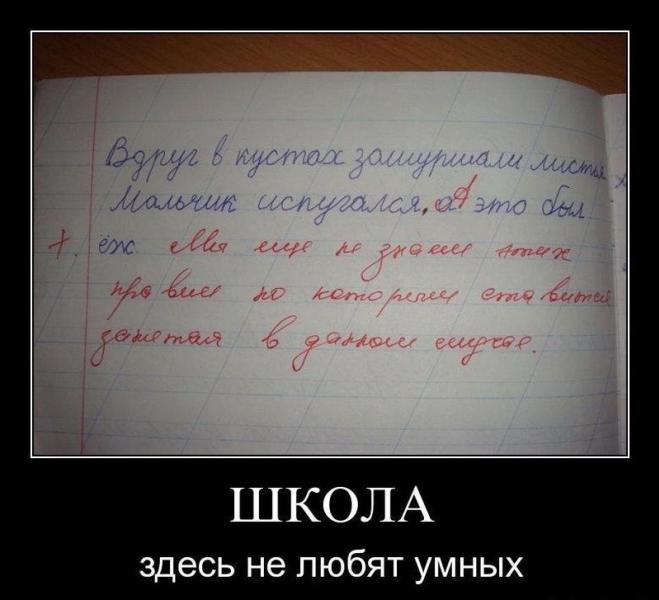 Вдруг в кустах зашуршали листья
Мальчик испугался, а А это был
ёж. Мы еще не знаем этих
правил по которым ставится
запятая в данном случае.
ШКОЛА
здесь не любят умных